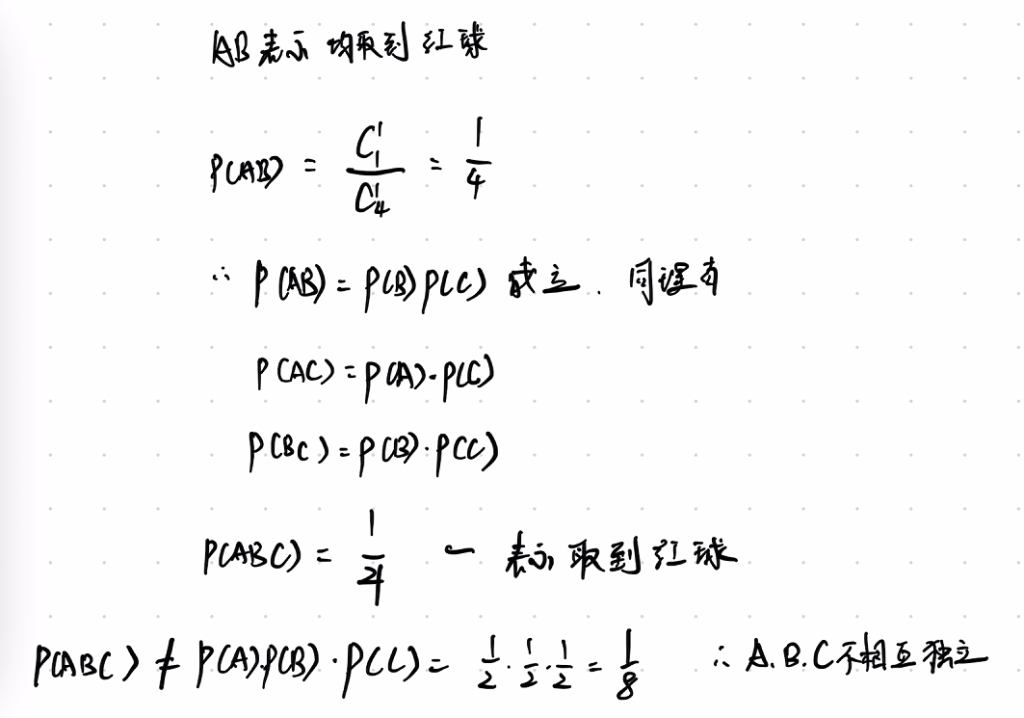 AB表示 均取到红球
P(AB) = C₁¹/C₄¹ = 1/4
∴ P(AB) = P(B)P(C) 成立. 同理有
P(AC) = P(A)·P(C)
P(BC) = P(B)·P(C)
P(ABC) = 1/4 — 表示取到红球
P(ABC) ≠ P(A)·P(B)·P(C) = 1/2·1/2·1/2 = 1/8 ∴ A.B.C不相互独立